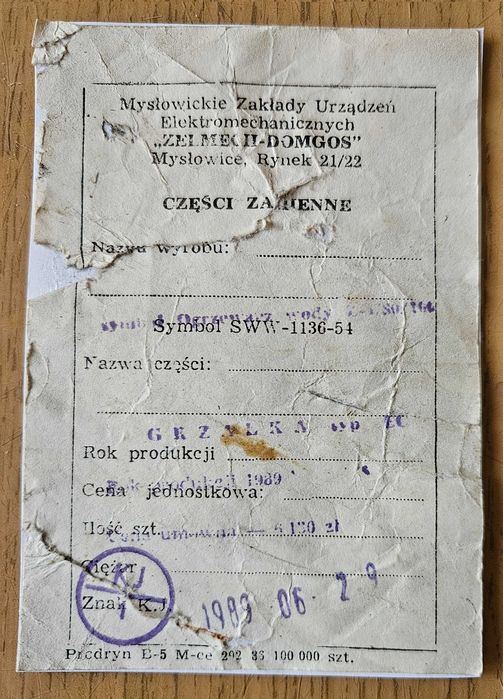 Mysłowickie Zakłady Urządzeń
Elektromechanicznych
„ZELMECH-DOMGOS"
Mysłowice, Rynek 21/22
CZĘŚCI ZAMIENNE
Nazwa wyrobu:
symbol Ogrzewacz wody
Symbol SWW-1136-54
Nazwa części:
GRZAŁKA typ
Rok produkcji
Rok produkcji 1989
Cena jednostkowa:
Ilość szt.
Cena umowna —
Ciężar
KJ
1
Znak K.J.
1989 -06- 29
E-5 M-ce 292 36 100 000 szt.